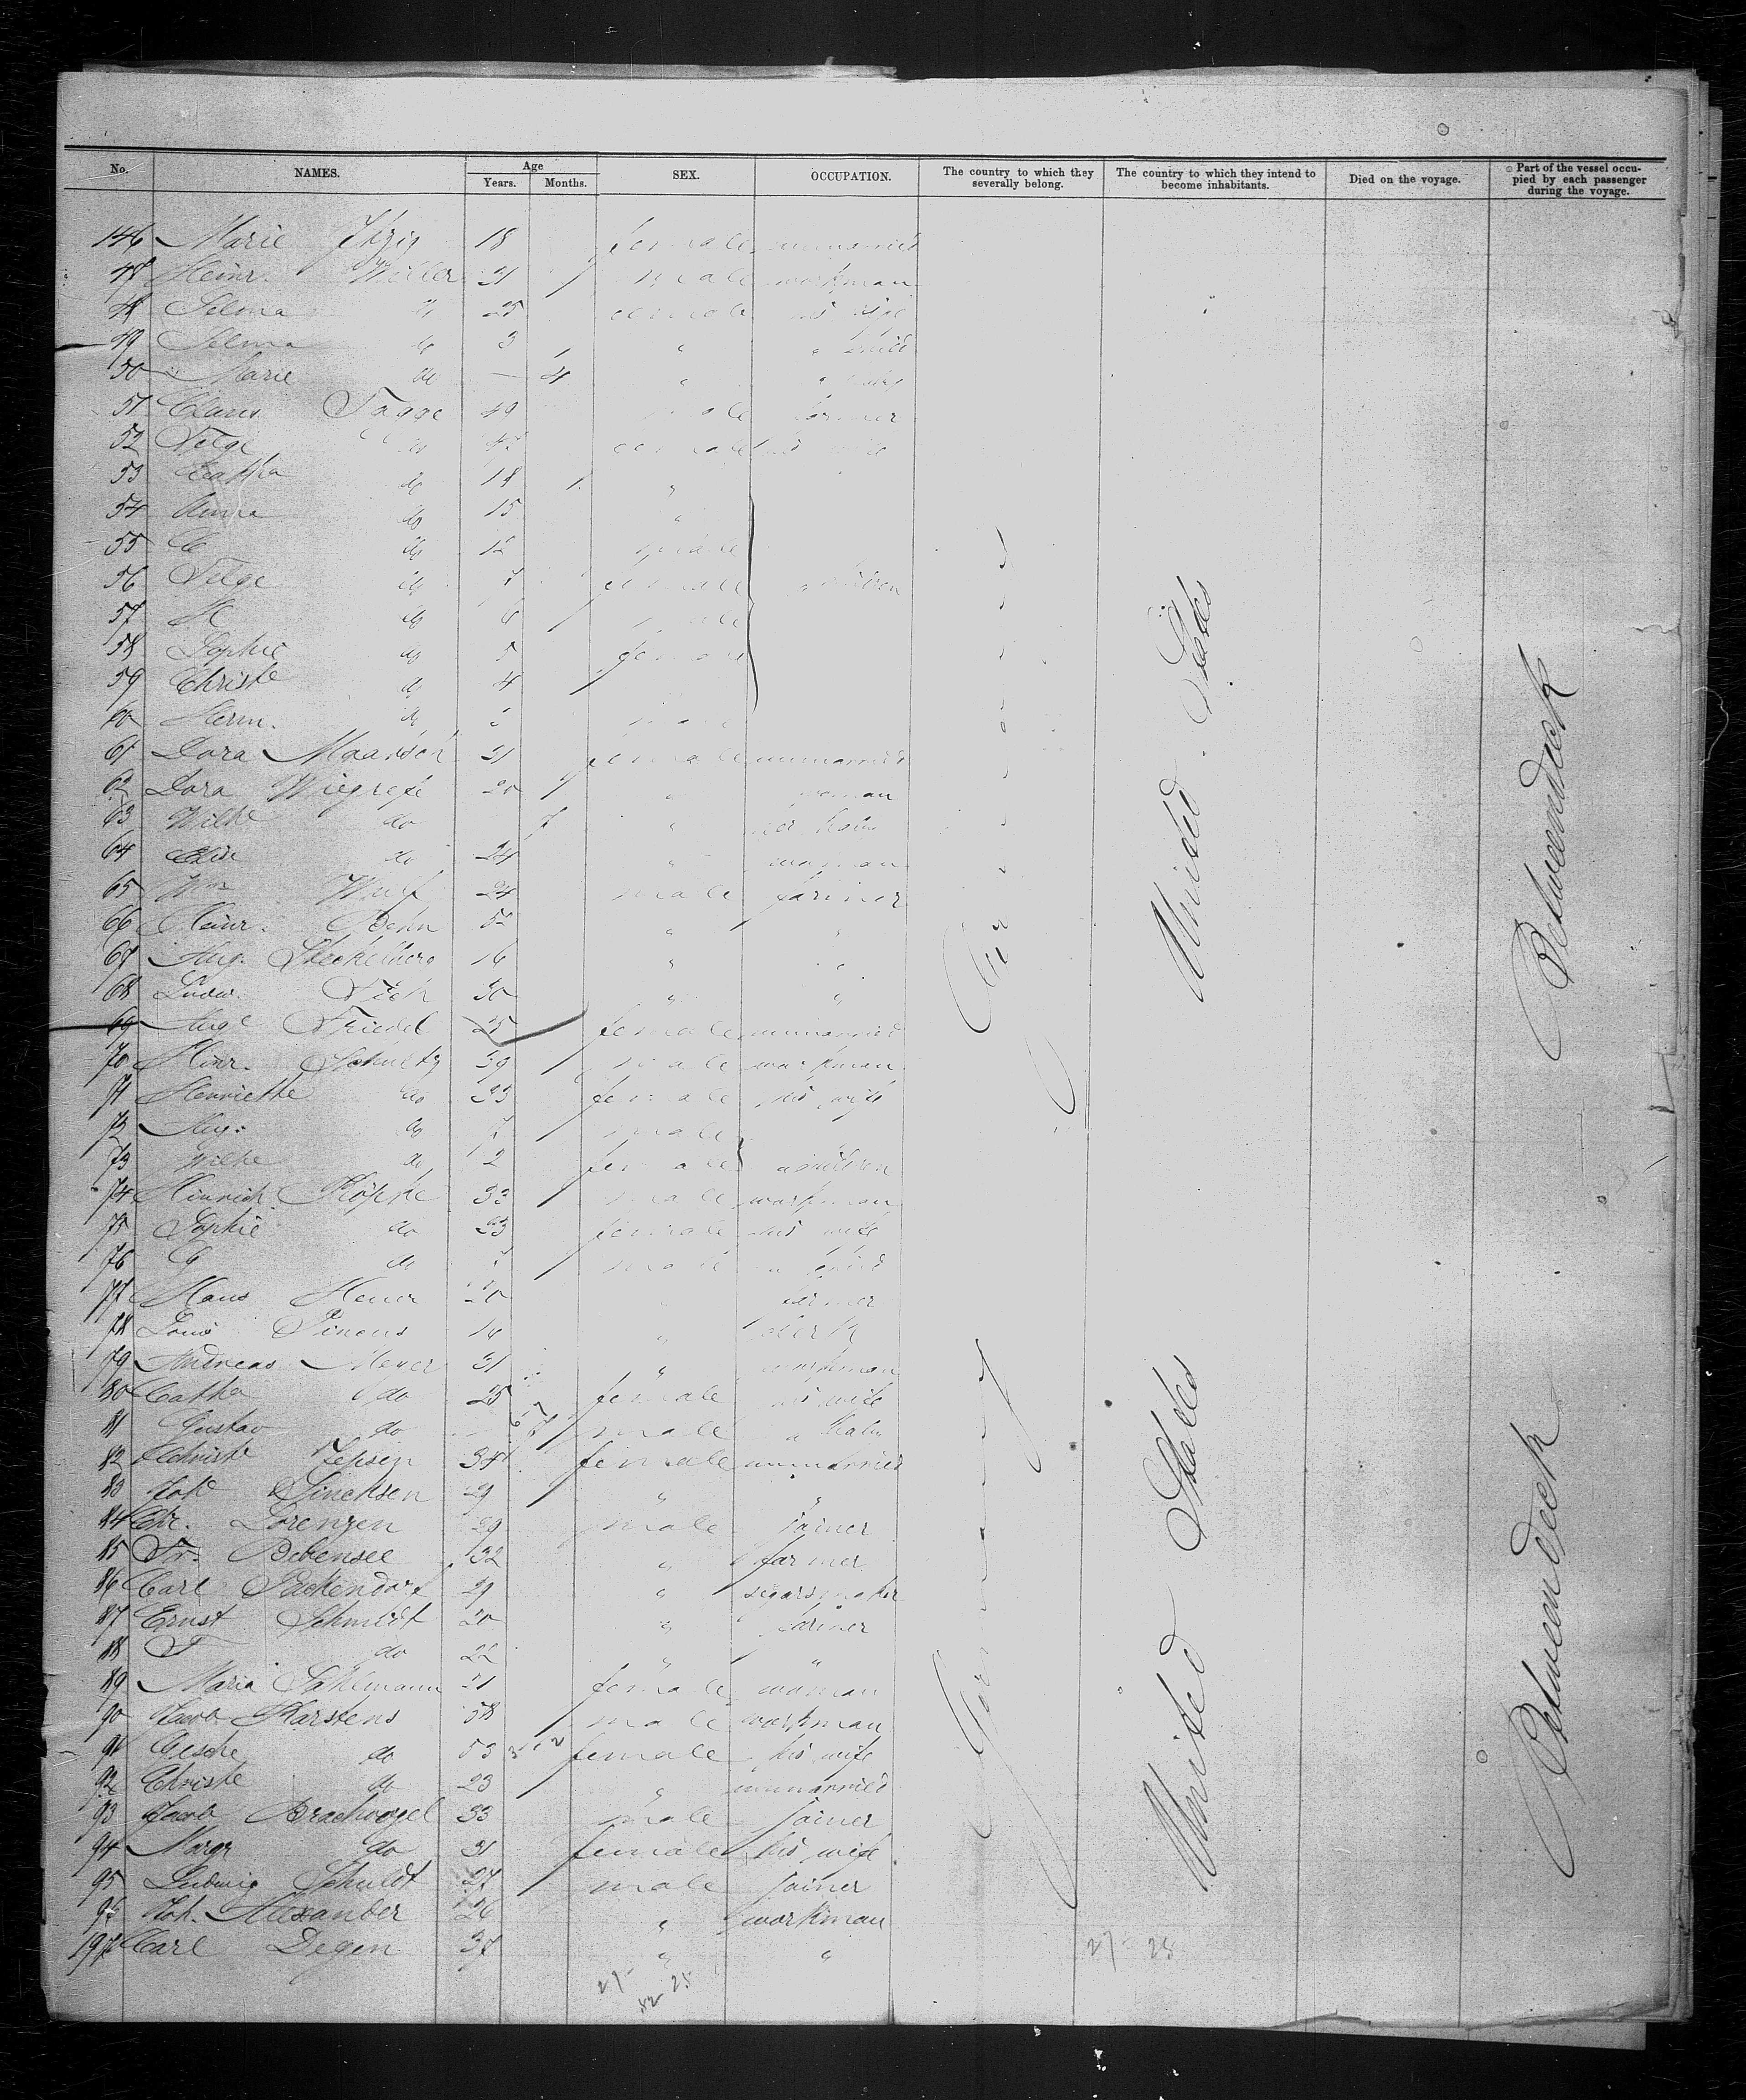 No. NAMES. Age Years. Months. SEX. OCCUPATION. The country to which they severally belong. The country to which they intend to become inhabitants. Died on the voyage. Part of the vessel occupied by each passenger during the voyage.
146 Marie 18 female unmarried
47 Heinr. Willer 31 male workman
48 Selma do 25 female his wife
49 Selma do 3 " " child
50 Marie do — 4 " " baby
51 Claus Tagge 49 male farmer
52 Telge do female his wife
53 Catha do 18 "
54 Anna do 15 "
55 C do 12 male
56 Telge do 7 female children
57 H do 6 male
58 Sophie do 5 female
59 Christe do 4
60 Herm. do male
61 Dora Maassen 21 female unmarried
62 Dora Wiegrefe 20 " woman
63 Wilhe do 7 " her baby
64 Elise do 24 " woman
65 Wm Wulf 24 male farmer
66 Heinr. Behn 52 " "
67 Aug. Steckelberg 16 " "
68 Ludw. Tieh 30 " "
69 Auge Friedel 25 female unmarried
70 Hinr. Schultz 39 male workman
71 Henriette do 33 female his wife
72 Aug. do 7 male
73 Wilhe do 2 female children
74 Hinrich Köpke 33 male workman
75 Sophie do 33 female his wife
76 G do 7 male a child
77 Hans Heuer 20 " farmer
78 Louis Pincus 16 " clerk
79 Andreas Meyer 31 " workman
80 Catha do 25 female his wife
81 Gustav do male a baby
82 Christe Jepsen 34 female unmarried
83 Sincksen 29 " "
84 Chr. Lorenzen 29 male joiner
85 Fr. Bebensee 32 " farmer
86 Carl Packendorf 29 " segarsmaker
87 Ernst Schmidt 20 " farmer
88 F do 22 " "
89 Maria Sahlmann 21 female woman
90 Jacob Karstens 58 male workman
91 Gesche do 53 female his wife
92 Christe do 23 " unmarried
93 Jacob Brachvogel 33 male joiner
94 Margr do 31 female his wife
95 Ludwig Schuldt 27 male joiner
96 Joh. Alexander 26 " workman
197 Carl Degen 37 " "
Germany
United States
Betweendeck
Germany
United States
Betweendeck
27 28
27 28
52